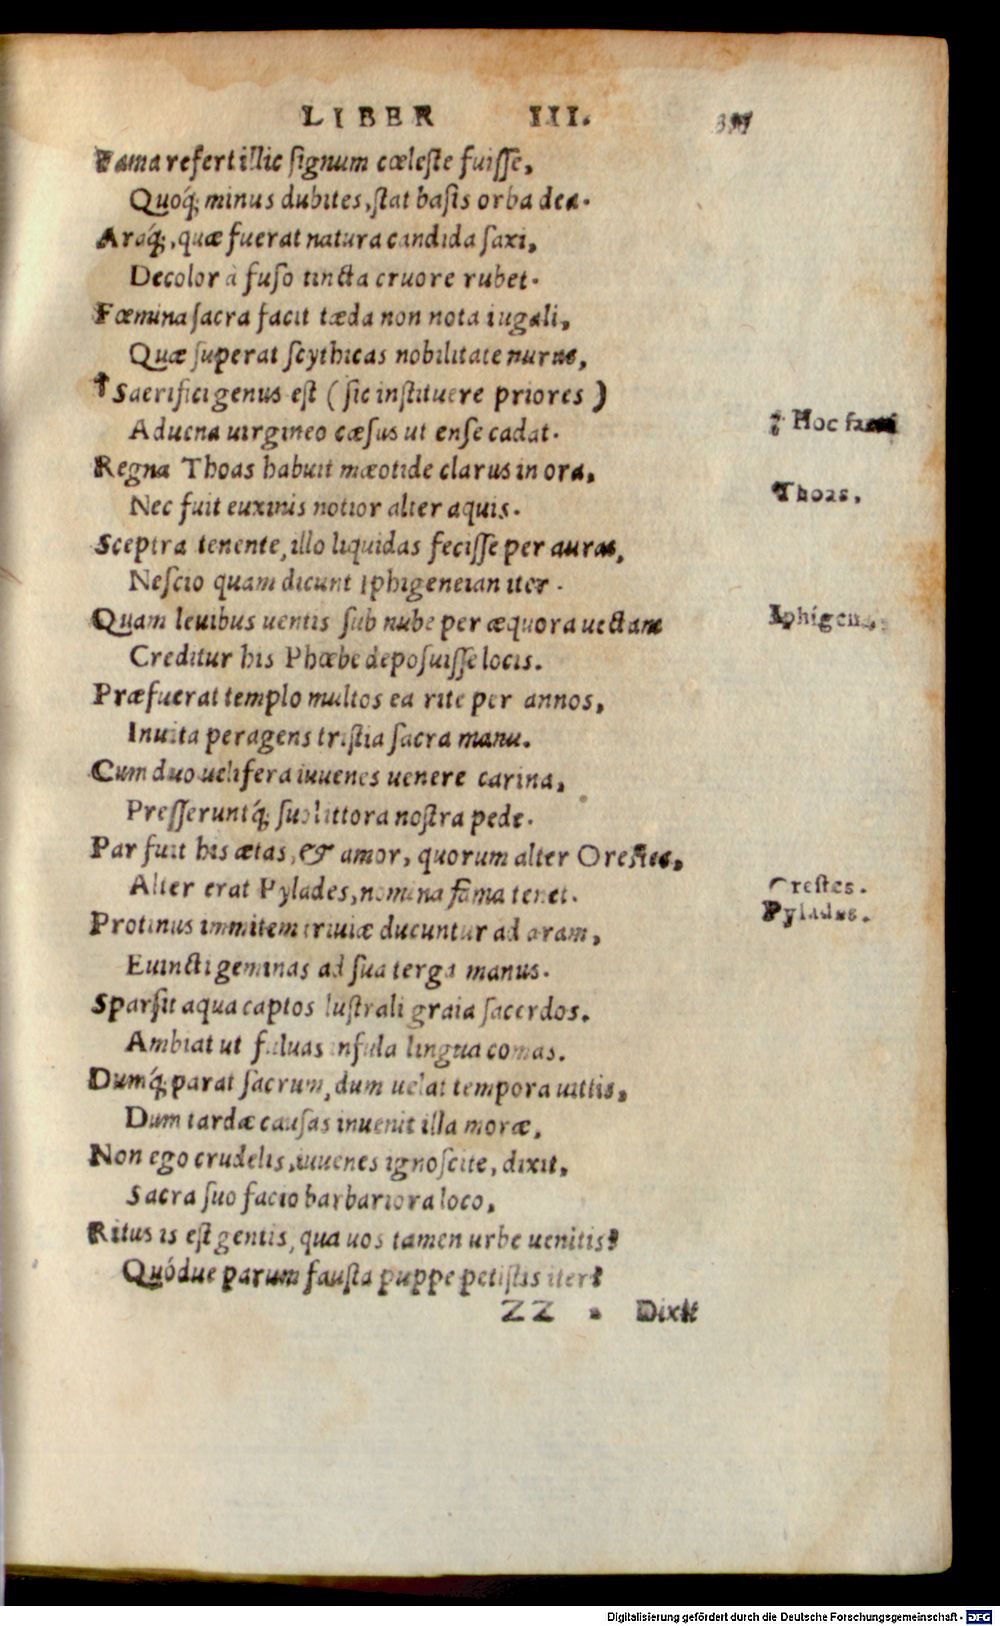 LIBER III.
Fama refert illic ſignum cœleſte fuiſſe,
Quoq́; minus dubites, ſtat baſis orba dea.
Araq́;, quæ fuerat natura candida ſaxi,
Decolor à fuſo tincta cruore rubet.
Fœmina ſacra facit tæda non nota iugali,
Quæ ſuperat ſcythicas nobilitate nurus,
† Sacrifici genus eſt (ſic inſtituere priores)
Aduena uirgineo cæſus ut enſe cadat.
† Hoc
Regna Thoas habuit mæotide clarus in ora,
Thoas.
Nec fuit euxinis notior alter aquis.
Sceptra tenente, illo liquidas feciſſe per auras,
Neſcio quam dicunt Iphigeneian iter.
Quam leuibus uentis ſub nube per æquora uectam
Iphigen
Creditur his Phœbe depoſuiſſe locis.
Præfuerat templo multos ea rite per annos,
Inuita peragens triſtia ſacra manu.
Cum duo uelifera iuuenes uenere carina,
Preſſeruntq́; ſuo littora noſtra pede.
Par fuit his ætas, & amor, quorum alter Oreſtes,
Alter erat Pylades, nomina fama tenet.
Oreſtes.
Pylades.
Protinus immitem triuiæ ducuntur ad aram,
Euincti geminas ad ſua terga manus.
Sparſit aqua captos luſtrali graia ſacerdos.
Ambiat ut fuluas infula lingua comas.
Dumq́; parat ſacrum, dum uelat tempora uittis,
Dum tardæ cauſas inuenit illa moræ,
Non ego crudelis, iuuenes ignoſcite, dixit,
Sacra ſuo facio barbariora loco,
Ritus is eſt gentis, qua uos tamen urbe uenitis?
Quódue parum fauſta puppe petiſtis iter?
ZZ Dixit
Digitalisierung gefördert durch die Deutsche Forschungsgemeinschaft - DFG